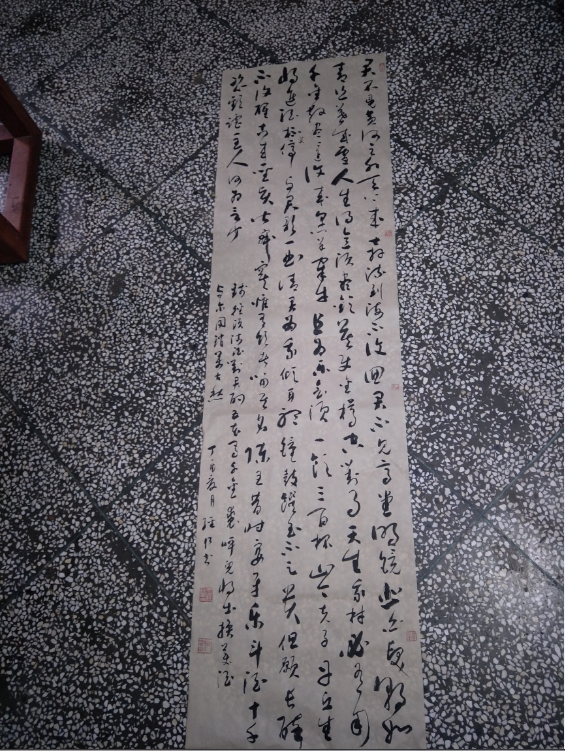 君不見黃河之水天上來奔流到海不復回君不見高堂明鏡悲白髮朝如
青絲暮成雪人生得意須盡歡莫使金樽空對月天生我材必有用
千金散盡還復來烹羊宰牛且為樂會須一飲三百杯岑夫子丹丘生
將進酒杯停與君歌一曲請君為我傾耳聽鐘鼓饌玉不足貴但願長醉
不復醒古來聖賢皆寂寞惟有飲者留其名陳王昔時宴平樂斗酒十千
恣歡謔主人何為言少
錢徑須沽酒對君酌五花馬千金裘呼兒將出換美酒
與爾同銷萬古愁
丁酉夏月